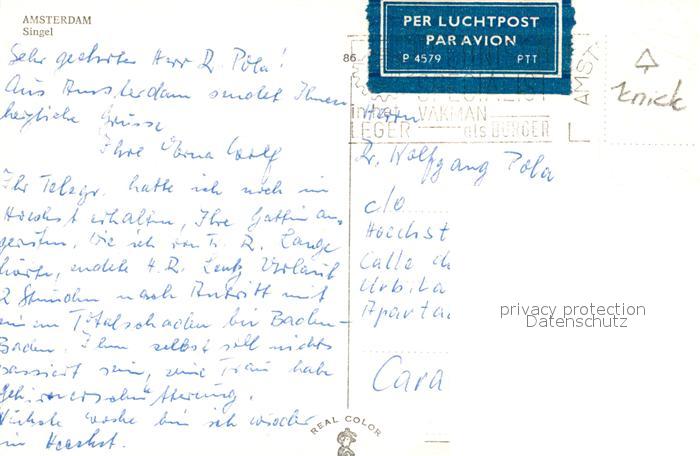 AMSTERDAM
Singel
Sehr geehrter Herr D. Pöla!
Aus Amsterdam sendet Ihnen
herzliche Grüsse
Ihre Erna Wolf
Ihr Telegr. hatte ich noch in
Hoechst erhalten, Ihre Gattin an-
gerufen. Wie ich von Fr. D. Lange
hörte, endete H. D. Lentz Urlaub
2 Stunden nach Antritt mit
einem Totalschaden bei Baden-
Baden. Ihm selbst soll nichts
passiert sein, seine Frau habe
Gehirnerschütterung.
Nächste Woche bin ich wieder
in Hoechst.
PER LUCHTPOST
PAR AVION
P 4579 PTT
86
AMST
VAKMAN
EGER als BURGER
Knick
Herrn
Dr. Wolfgang Pöla
c/o
Hoechst
Calle de
Urbita
Aparta
Cara
REAL COLOR
privacy protection
Datenschutz